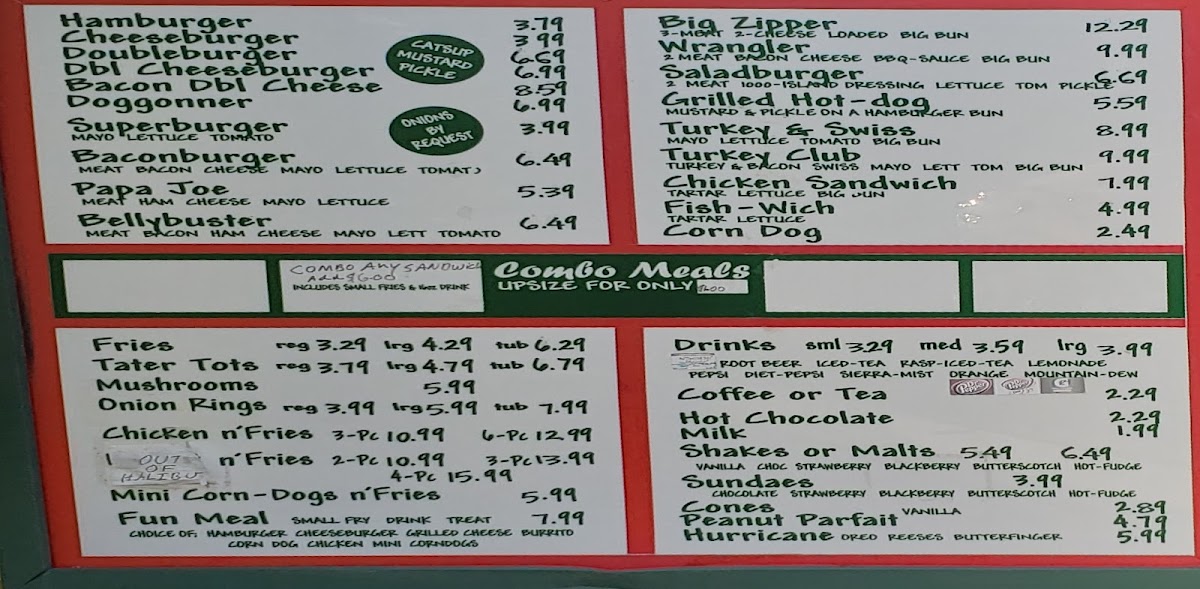 Hamburger 3.79
Cheeseburger 3.99
Doubleburger 6.69
Dbl Cheeseburger 6.99
Bacon Dbl Cheese 8.59
Doggonner 6.99
CATSUP
MUSTARD
PICKLE
Superburger 3.99
MAYO LETTUCE TOMATO
ONIONS
BY
REQUEST
Baconburger 6.49
MEAT BACON CHEESE MAYO LETTUCE TOMATO
Papa Joe 5.39
MEAT HAM CHEESE MAYO LETTUCE
Bellybuster 6.49
MEAT BACON HAM CHEESE MAYO LETT TOMATO
Big Zipper 12.29
3-MEAT 2-CHEESE LOADED BIG BUN
Wrangler 9.99
2 MEAT BACON CHEESE BBQ-SAUCE BIG BUN
Saladburger 6.69
2 MEAT 1000-ISLAND DRESSING LETTUCE TOM PICKLE
Grilled Hot-dog 5.59
MUSTARD & PICKLE ON A HAMBURGER BUN
Turkey & Swiss 8.99
MAYO LETTUCE TOMATO BIG BUN
Turkey Club 9.99
TURKEY & BACON SWISS MAYO LETT TOM BIG BUN
Chicken Sandwich 7.99
TARTAR LETTUCE BIG BUN
Fish-Wich 4.99
TARTAR LETTUCE
Corn Dog 2.49
COMBO ANY SANDWICH
Add $6.00
INCLUDES SMALL FRIES & 16oz DRINK
Combo Meals
UPSIZE FOR ONLY $1.00
Fries reg 3.29 lrg 4.29 tub 6.29
Tater Tots reg 3.79 lrg 4.79 tub 6.79
Mushrooms 5.99
Onion Rings reg 3.99 lrg 5.99 tub 7.99
Chicken n' Fries 3-Pc 10.99 6-Pc 12.99
OUT OF HALIBUT n' Fries 2-Pc 10.99 3-Pc 13.99
4-Pc 15.99
Mini Corn-Dogs n' Fries 5.99
Fun Meal SMALL FRY DRINK TREAT 7.99
CHOICE OF: HAMBURGER CHEESEBURGER GRILLED CHEESE BURRITO
CORN DOG CHICKEN MINI CORNDOGS
Drinks sml 3.29 med 3.59 lrg 3.99
ROOT BEER ICED-TEA RASP-ICED-TEA LEMONADE
PEPSI DIET-PEPSI SIERRA-MIST ORANGE MOUNTAIN-DEW
Coffee or Tea 2.29
Hot Chocolate 2.29
Milk 1.99
Shakes or Malts 5.49 6.49
VANILLA CHOC STRAWBERRY BLACKBERRY BUTTERSCOTCH HOT-FUDGE
Sundaes 3.99
CHOCOLATE STRAWBERRY BLACKBERRY BUTTERSCOTCH HOT-FUDGE
Cones VANILLA 2.89
Peanut Parfait 4.79
Hurricane OREO REESES BUTTERFINGER 5.99